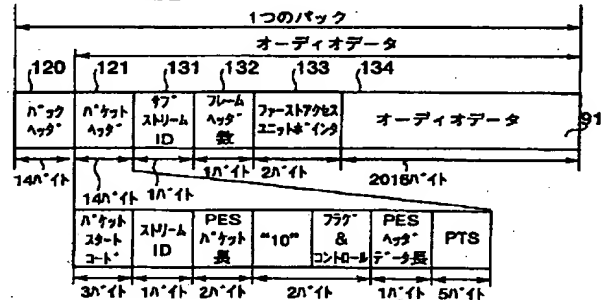 1つのパック
オーディオデータ
120 121 131 132 133 134
パック ヘッダ
パケット ヘッダ
サブ ストリーム ID
フレーム ヘッダ 数
ファーストアクセス ユニットポインタ
オーディオデータ
91
14バイト 14バイト 1バイト 1バイト 2バイト 2016バイト
パケット スタート コード
ストリーム ID
PES パケット 長
"10"
フラグ & コントロール
PES ヘッダ データ長
PTS
3バイト 1バイト 2バイト 2バイト 1バイト 5バイト